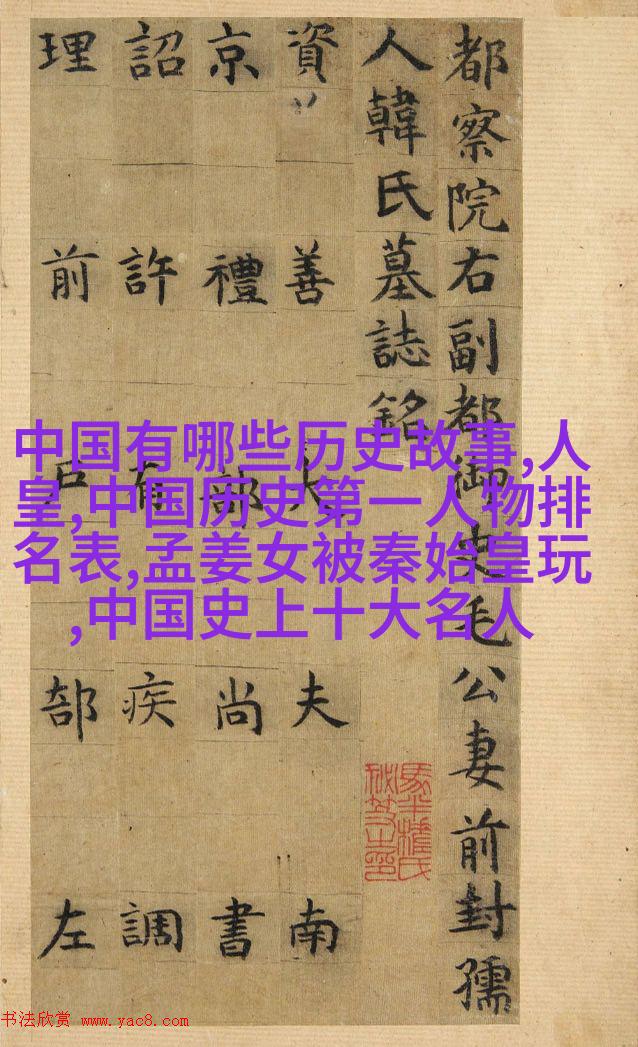 都察院右副都御史毛公妻前封孺
人韓氏墓誌銘
資善大夫南
京禮部尚書
詔許有疾調
理前戶部左
中国有哪些历史故事,人
皇,中国历史第一人物排
名表,孟姜女被秦始皇玩
,中国史上十大名人
书法欣赏 www.yac8.com